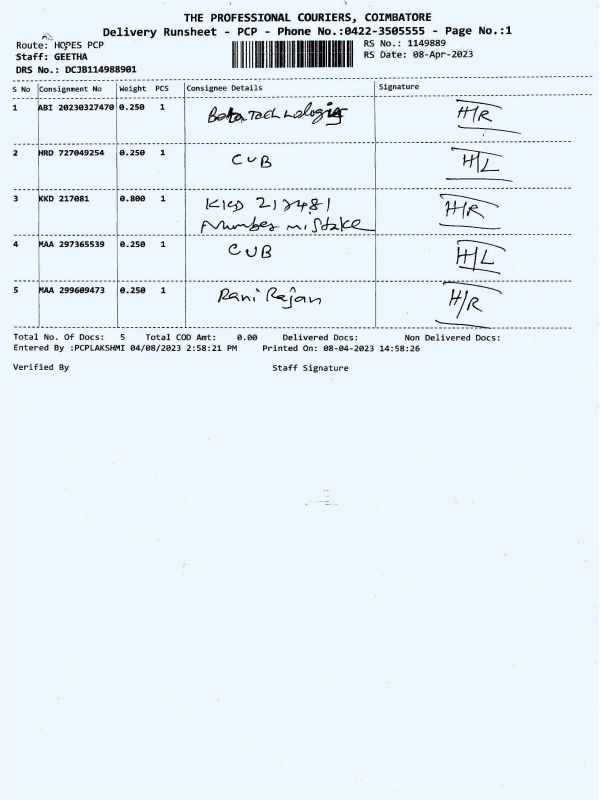 THE PROFESSIONAL COURIERS, COIMBATORE
Delivery Runsheet - PCP - Phone No.:0422-3505555 - Page No.:1
Route: HOPES PCP
RS No.: 1149889
Staff: GEETHA
RS Date: 08-Apr-2023
DRS No.: DCJB114988901
S No Consignment No Weight PCS Consignee Details Signature
1 ABI 20230327470 0.250 1 Beta Technologies H/R
2 HRD 727049254 0.250 1 CUB H/L
3 KKD 217081 0.800 1 KKD 217481 H/R
Number mistake
4 MAA 297365539 0.250 1 CUB H/L
5 MAA 299609473 0.250 1 Rani Rajan H/R
Total No. Of Docs: 5 Total COD Amt: 0.00 Delivered Docs: Non Delivered Docs:
Entered By :PCPLAKSHMI 04/08/2023 2:58:21 PM Printed On: 08-04-2023 14:58:26
Verified By Staff Signature